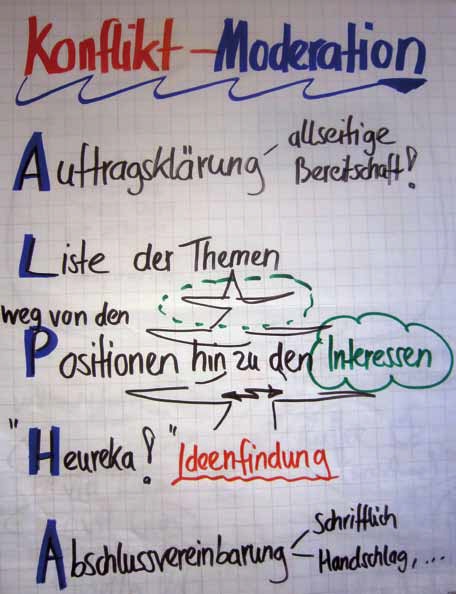 Konflikt - Moderation
Auftragsklärung - allseitige
Bereitschaft!
Liste der Themen
weg von den
Positionen hin zu den Interessen
"Heureka!" Ideenfindung
Abschlussvereinbarung < Schriftlich
Handschlag, ...